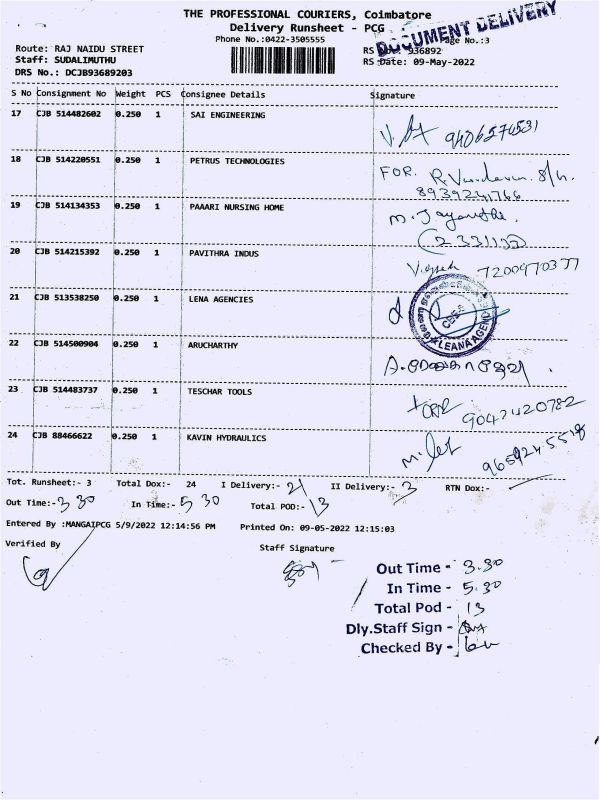 THE PROFESSIONAL COURIERS, Coimbatore
Delivery Runsheet - PCG
DOCUMENT DELIVERY
Phone No.:0422-3505555
Page No.:3
Route: RAJ NAIDU STREET
RS No: 936892
Staff: SUDALIMUTHU
RS Date: 09-May-2022
DRS No.: DCJB93689203
S No Consignment No Weight PCS Consignee Details Signature
17 CJB 514482602 0.250 1 SAI ENGINEERING
9406574531
18 CJB 514220551 0.250 1 PETRUS TECHNOLOGIES
FOR.
8939241766
19 CJB 514134353 0.250 1 PAAARI NURSING HOME
M.
20 CJB 514215392 0.250 1 PAVITHRA INDUS
7200970377
21 CJB 513538250 0.250 1 LENA AGENCIES
LEANA AGENC
22 CJB 514500904 0.250 1 ARUCHARTHY
23 CJB 514483737 0.250 1 TESCHAR TOOLS
9042420782
24 CJB 88466622 0.250 1 KAVIN HYDRAULICS
9659245518
Tot. Runsheet:- 3 Total Dox:- 24 I Delivery:- 21 II Delivery:- 3 RTN Dox:-
Out Time:- 3 30 In Time:- 5 30 Total POD:- 13
Entered By :MANGAIPCG 5/9/2022 12:14:56 PM Printed On: 09-05-2022 12:15:03
Verified By Staff Signature
Out Time - 3.30
In Time - 5.30
Total Pod - 13
Dly.Staff Sign -
Checked By -